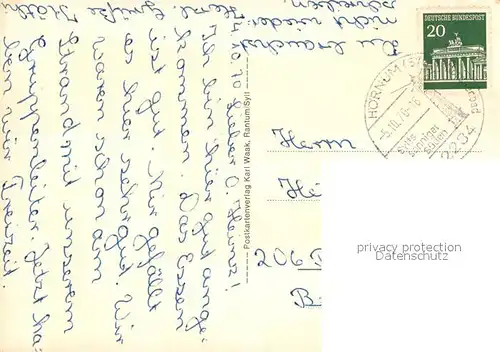 4.10.70
Lieber O. Heinz!
Ich bin hier gut ange-
kommen. Das Essen
ist gut. Mir gefällt
hier sehr gut. Wir
waren schon am
Strand mit unserem
Gruppenleiter. Jetzt ha-
ben wir Freizeit.
Du brauchst
nicht wieder
schreiben.
Herzl. Grüße
Postkartenverlag Karl Waak, Rantum/Sylt
DEUTSCHE BUNDESPOST
20
HÖRNUM (SYLT)
-5.10.70-16
2234
Herrn
He
206
B
privacy protection
Datenschutz!